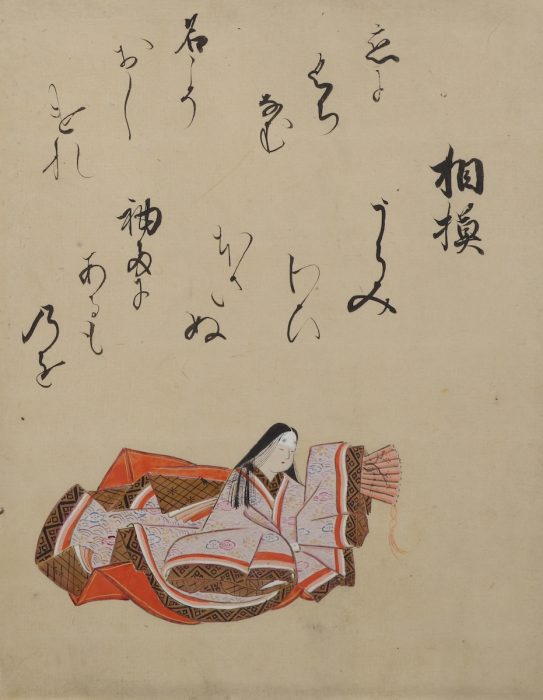 相摸
うらみ
わひ
ほさぬ
袖多に
あるも
乃を
恋に
くち
なむ
名こそ
おし
けれ